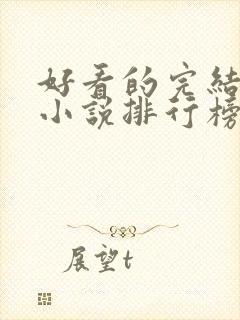 好看的完结
小说排行榜
展望t